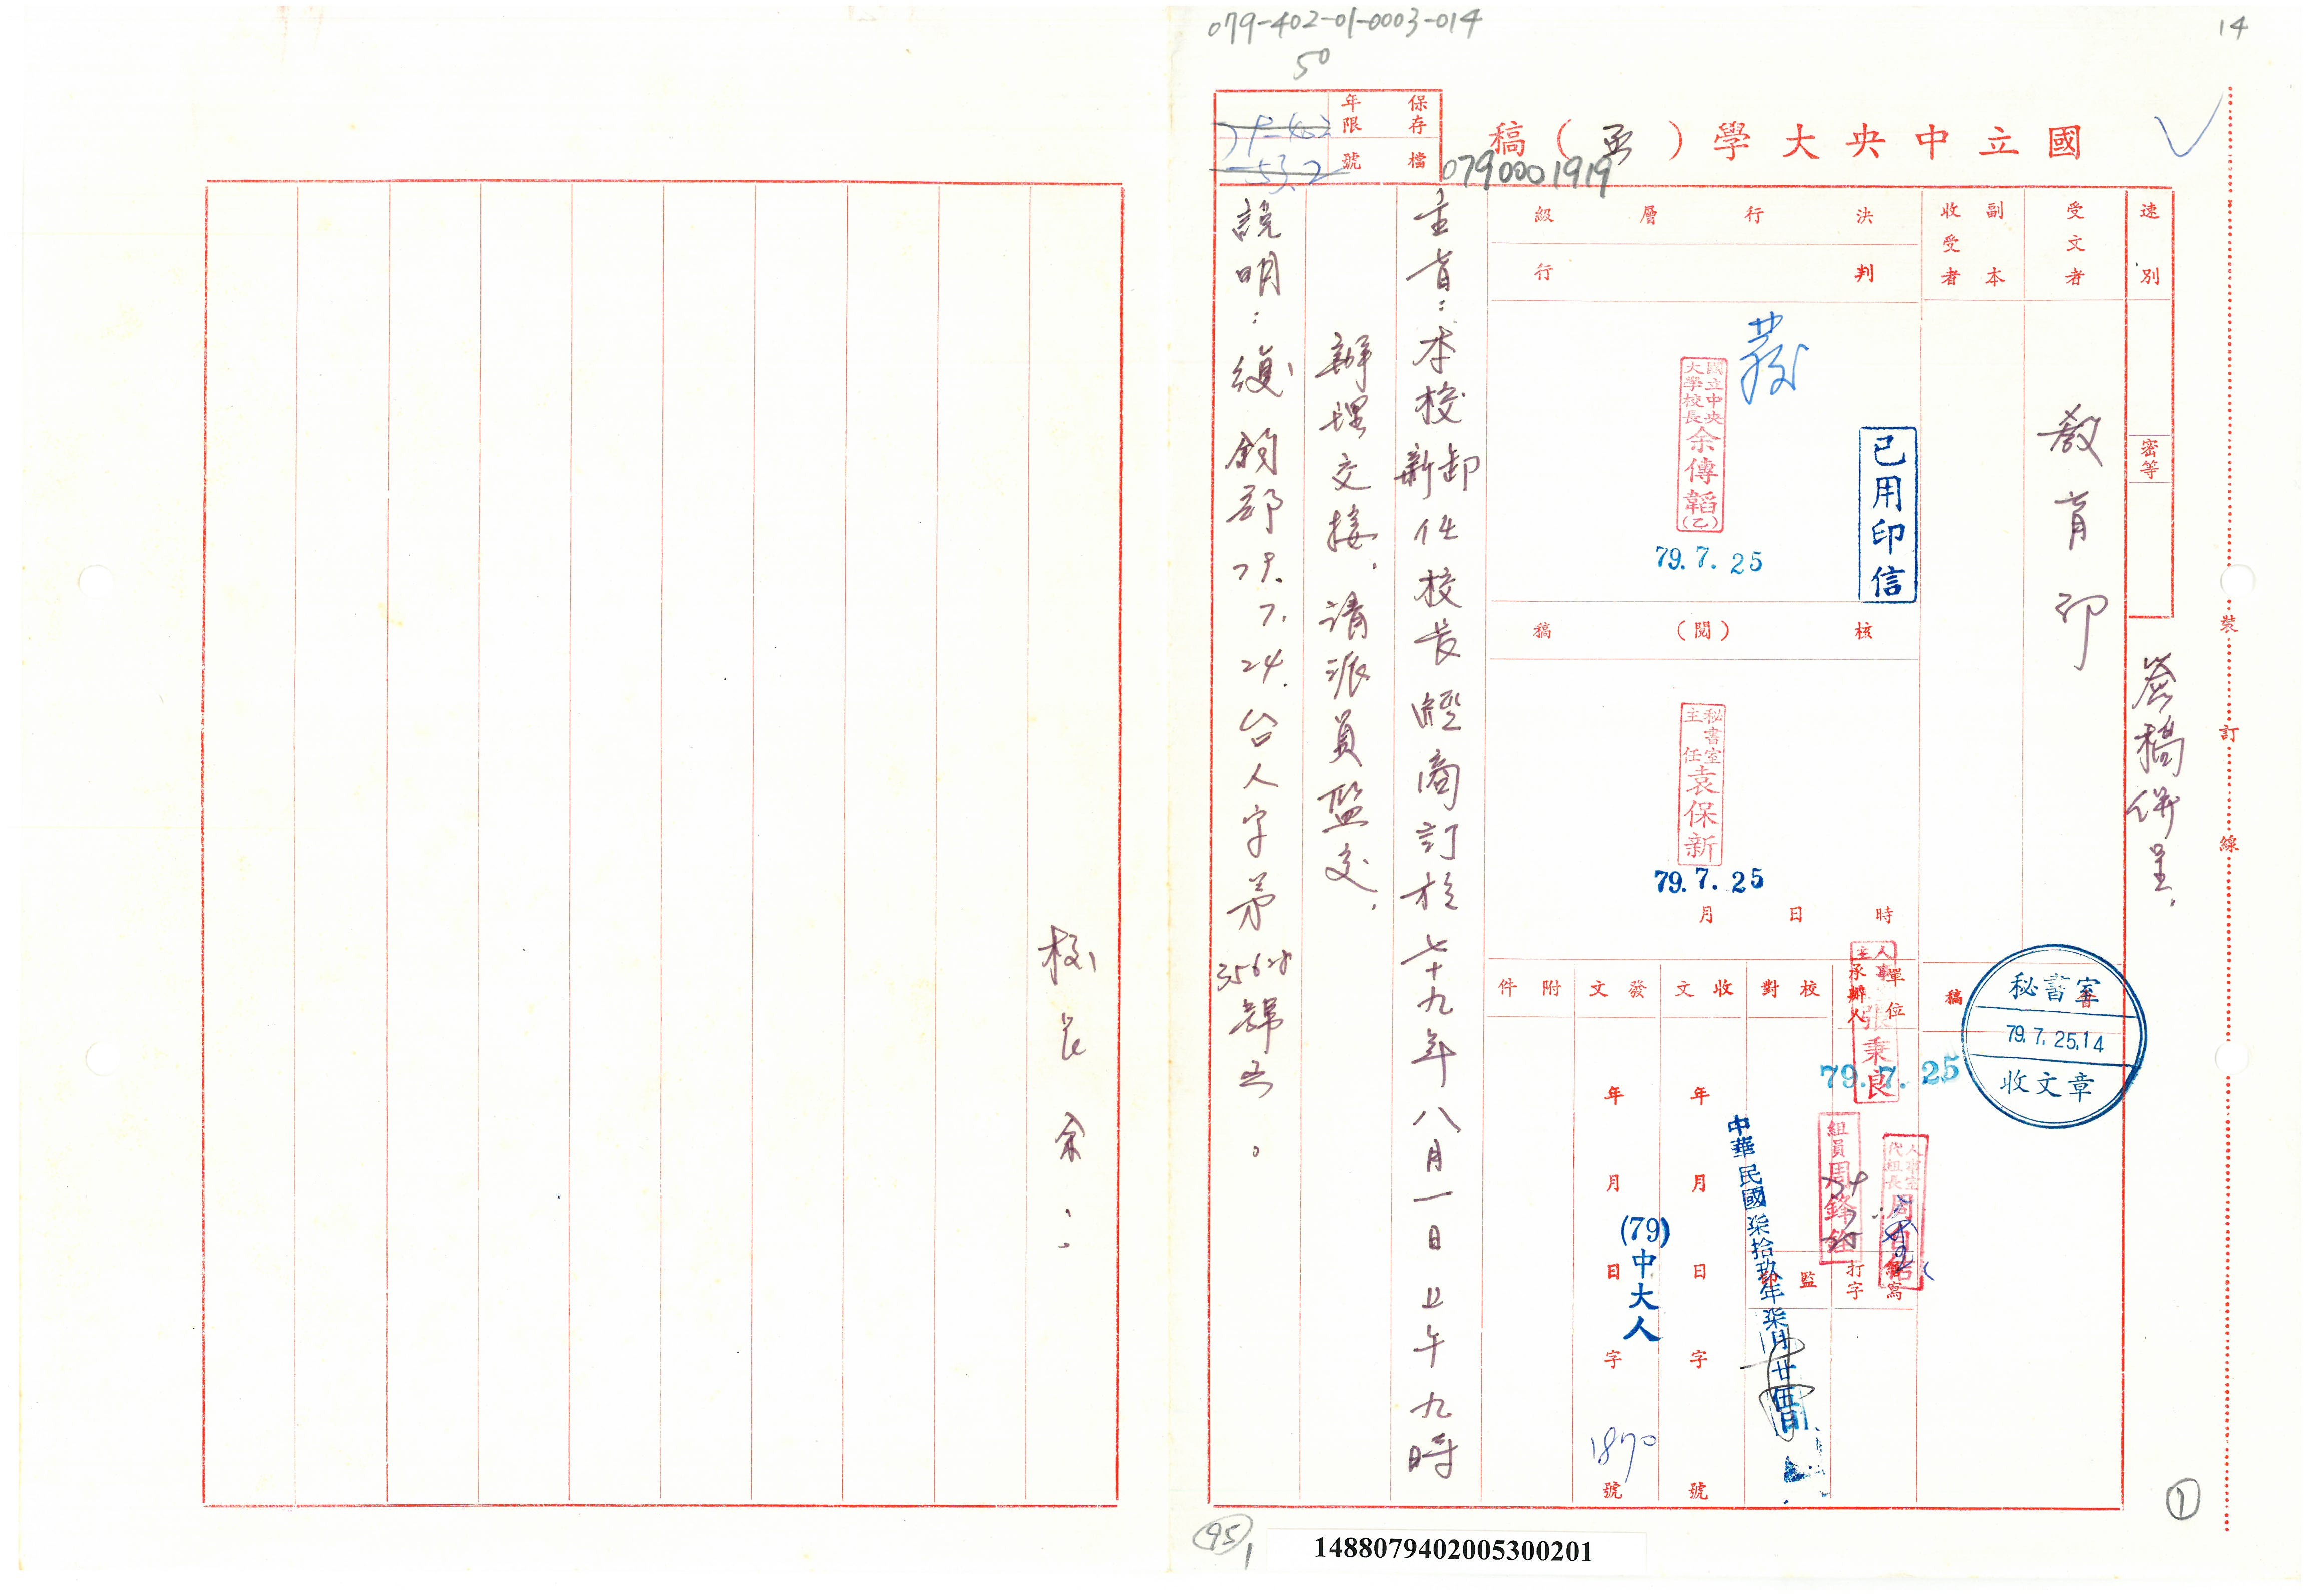 079-402-01-0003-014
50
14
國立中央大學(函)稿
0790001919
保存年限
檔號
速別
密等
簽稿併呈.
受文者
教育部
副本收受者
決行層級
判行
發
國立中央大學校長余傳韜(乙)
79.7.25
已用印信
核(閱)稿
秘書室主任袁保新
79.7.25
時
日
月
秘書室
79.7.25.14
收文章
稿
單位
承辦人
人事主
張秉良
79.7.25
組員周鋒銓
繕寫
打字
校對
監印
中華民國柒拾玖年柒月廿伍日
收文
年
月
日
字
號
發文
年
月
日
字
號
(79)中大人
1870
附件
主旨:本校新卸任校長經商訂於七十九年八月一日上午九時
辦理交接,請派員監交.
說明:復 鈞部79.7.24.台人字第35628號函。
校長余..
裝訂線
①
95
1
1488079402005300201